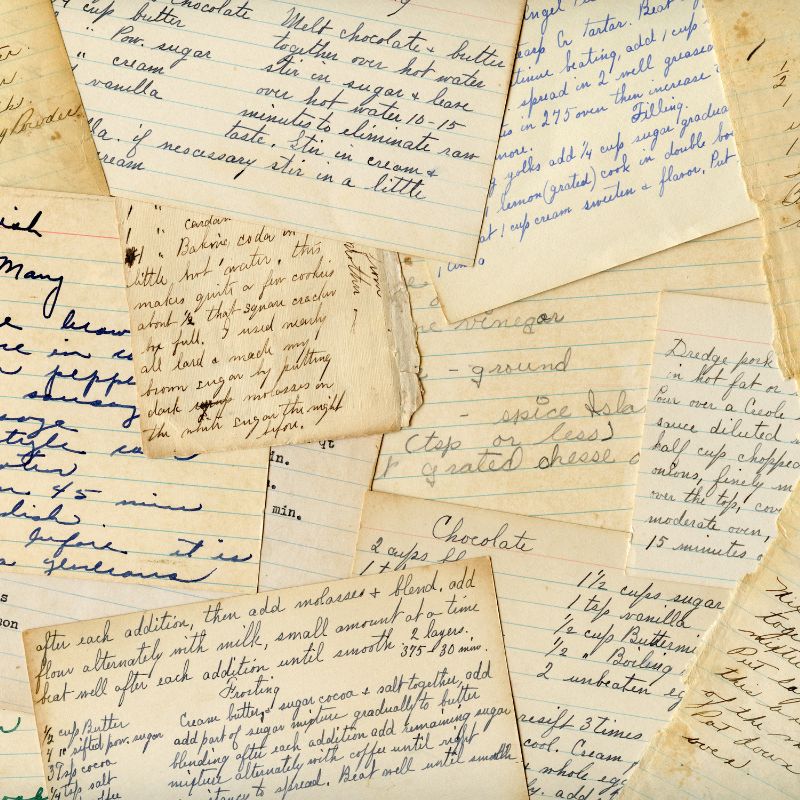 Chocolate
cup butter
" Pow. sugar
" cream
vanilla
if nescessary stir in a little
cream
Melt chocolate & butter
together over hot water
stir in sugar & leave
over hot water 10-15
minutes to eliminate raw
taste. Stir in cream &
Cr Tartar. Beat
beating, add 1 cup
spread in 2 well greased
in 275 oven then increase
more. Filling.
yolks add 1/4 cup sugar gradua
lemon (grated) cook in double bo
at 1 cup cream sweeten & flavor. Put
Powder
1/2
1
ish
Many
brow
in
peppe
sausag
45 min
dish.
before it is
a generous
1 " cardam
1 " Baking soda in
little hot water, this
makes quite a few cookies
about 1/2 that square cracker
box full. I used nearly
all lard & made my
brown sugar by putting
dark molasses on
the white sugar the night
before.
from
vinegar
- ground
- spice Isla
(tsp or less)
grated chesse
qt
in.
min.
Dredge pork
in hot fat or
Pour over a Creole
sauce diluted
half cup choppe
onions, finely m
over the top, cov
moderate oven,
15 minutes
Chocolate
2 cups
1 1/2 cups sugar
1 tsp vanilla
1/2 cup Buttermi
1/2 " Boiling
2 unbeaten eg
resift 3 times
cool. Cream
whole egg
add
after each addition, then add molasses & blend. add
flour alternately with milk, small amount at a time
beat well after each addition until smooth 2 layers.
375-30 min.
Frosting
1/2 cup Butter
4 " sifted pow. sugar
3 Tsp cocoa
1/4 tsp salt
coffee
Cream butter, sugar cocoa & salt together, add
add part of sugar mixture gradually to butter
blending after each addition add remaining sugar
mixture alternately with coffee until right
to spread. Beat well until smooth
s
on
Mi
toge
mixtu
Put
this
of the
Pat down
over.